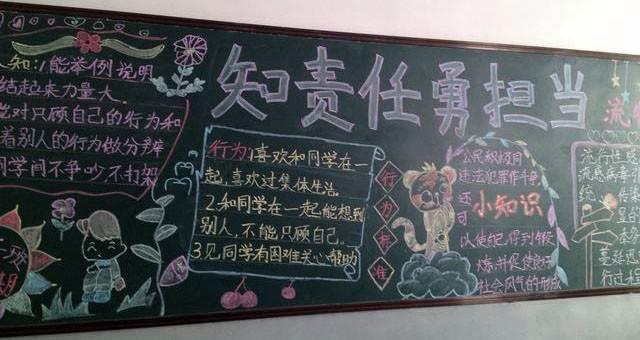 知责任勇担当
人知:1能举例说明
结起来力量大。
能对只顾自己的行为和
着别人的行为做分辨
同学间不争吵,不打架
行为:1喜欢和同学在一
起,喜欢过集体生活。
2.和同学在一起能想到
别人,不能只顾自己。
3.见同学有困难关心帮助
行
为
标
准
公民积极同
违法犯罪作斗争
还
可
小知识
以使纪得到锻
炼,并促使良好
社会风气的形成
流
流行性
流感病毒
传